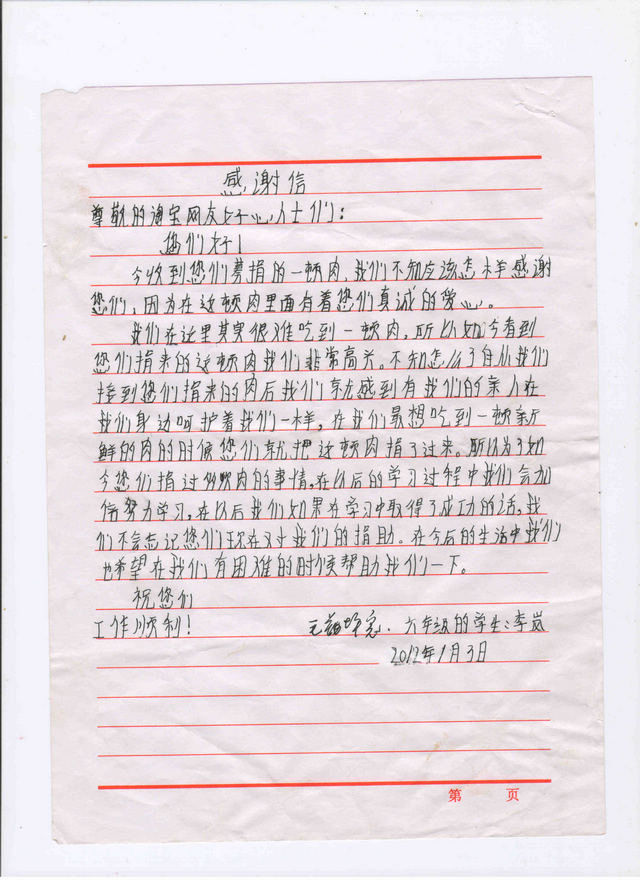 感谢信
尊敬的淘宝网友好心人士们：
您们好！
今收到您们募捐的一顿肉，我们不知应该怎样感谢
您们，因为在这顿肉里面有着您们真诚的爱心。
我们在这里其实很难吃到一顿肉，所以如今看到
您们捐来的这顿肉我们非常高兴。不知怎么了自从我们
接到您们捐来的肉后我们就感到有我们的亲人在
我们身边呵护着我们一样，在我们最想吃到一顿新
鲜的肉的时候您们就把这顿肉捐了过来。所以为了如
今您们捐过肉的事情，在以后的学习过程中我们会加
倍努力学习，在以后我们如果在学习中取得了成功的话，我
们不会忘记您们现在对我们的捐助。在今后的生活中我们
也希望在我们有困难的时候帮助我们一下。
祝您们
工作顺利！
六年级的学生：李岚
2012年1月3日
第 页